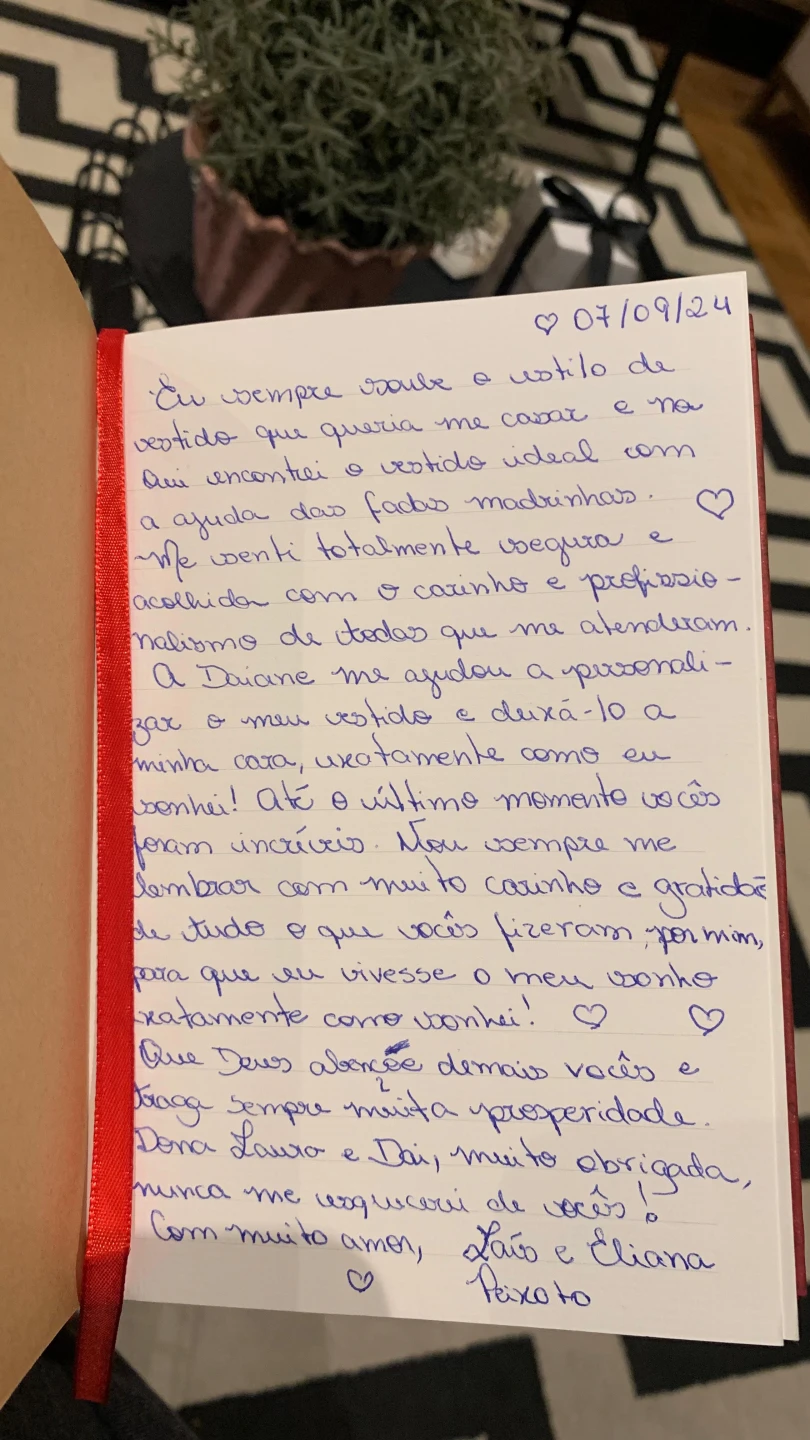 ♡ 07/09/24
Eu sempre soube o estilo de
vestido que queria me casar e na
encontrei o vestido ideal com
a ajuda das fadas madrinhas. ♡
Me senti totalmente segura e
acolhida com o carinho e profissio-
nalismo de todas que me atenderam.
A Daiane me ajudou a personali-
zar o meu vestido e deixá-lo a
minha cara, exatamente como eu
sonhei! Até o último momento vocês
foram incríveis. Vou sempre me
lembrar com muito carinho e gratidão
de tudo o que vocês fizeram, por mim,
para que eu vivesse o meu sonho
exatamente como sonhei! ♡ ♡
Que Deus abençõe demais vocês e
traga sempre muita prosperidade.
Dona Laura e Dai, muito obrigada,
nunca me esquecerei de vocês!
Com muito amor, Laís e Eliana
♡ Peixoto